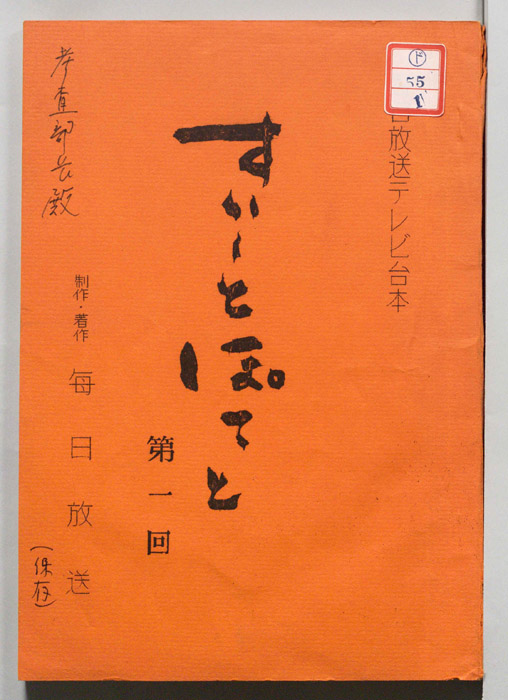 日放送テレビ台本
ド
55
1
すいーとぽてと
第一回
制作・著作
毎日放送
考査部長殿
(保存)